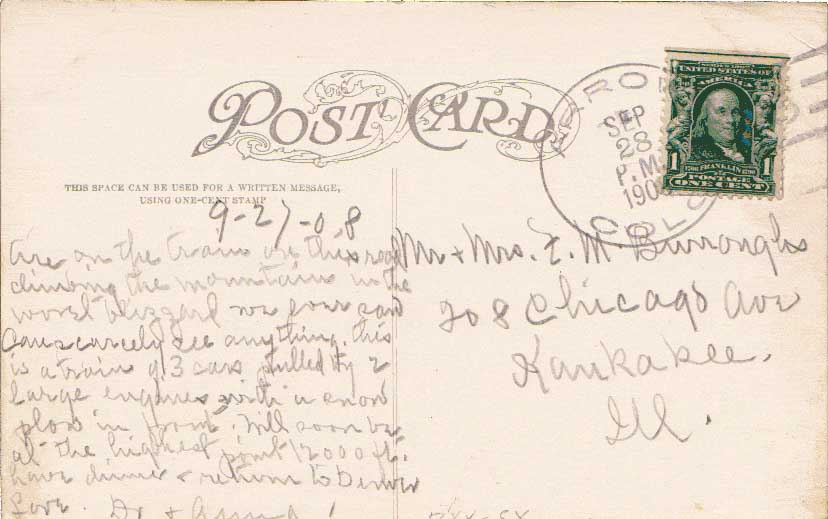 POST CARD
THIS SPACE CAN BE USED FOR A WRITTEN MESSAGE,
USING ONE-CENT STAMP
9-27-08
are on the train on this road
climbing the mountain in the
worst blizzard we ever saw
Can scarcely see anything. this
is a train of 3 cars pulled by 2
large engines with a snow
plow in front. Will soon be
at the highest point 12000 ft.
have dinner & return to Denver
Love. Dr & Anna
SEP
28
P.M.
190
COLO
UNITED STATES OF
AMERICA
1 FRANKLIN 1
POSTAGE
ONE CENT
Mr + Mrs. E. M Burroughs
208 Chicago Ave
Kankakee.
Ill.